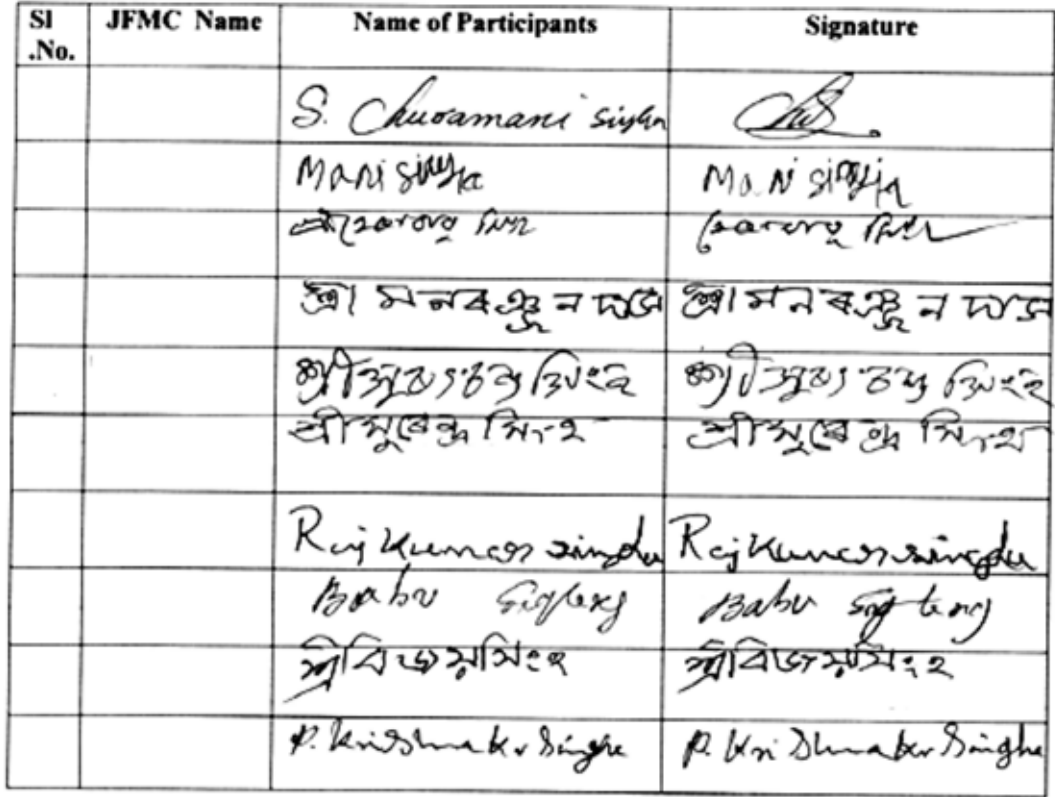 Sl .No. JFMC Name Name of Participants Signature
S. Chuoramani Singha
Mani Singha Mani Singha
শ্রী সিংহ সিংহ
শ্রী মনৰঞ্জন দাস শ্রী মনৰঞ্জন দাস
শ্রী চন্দ্র সিংহ শ্রী চন্দ্র সিংহ
শ্রী সুৰেন্দ্র সিংহ শ্রী সুৰেন্দ্র সিংহ
Raj Kumar Singha Raj Kumar Singha
Babu Babu
শ্রী বিজয় সিংহ শ্রী বিজয় সিংহ
P. Krishna Kr Singha P. Krishna Kr Singha